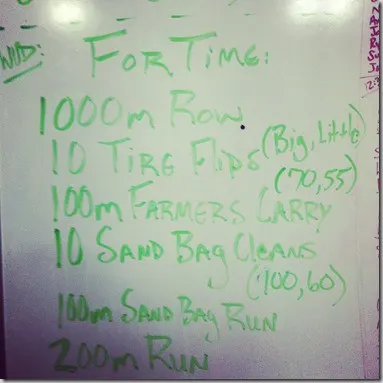 WOD:
FOR TIME:
1000m ROW
10 TIRE FLIPS (Big, Little)
(70, 55)
100m FARMERS CARRY
10 SAND BAG CLEANS
(100, 60)
100m SAND BAG RUN
200m RUN